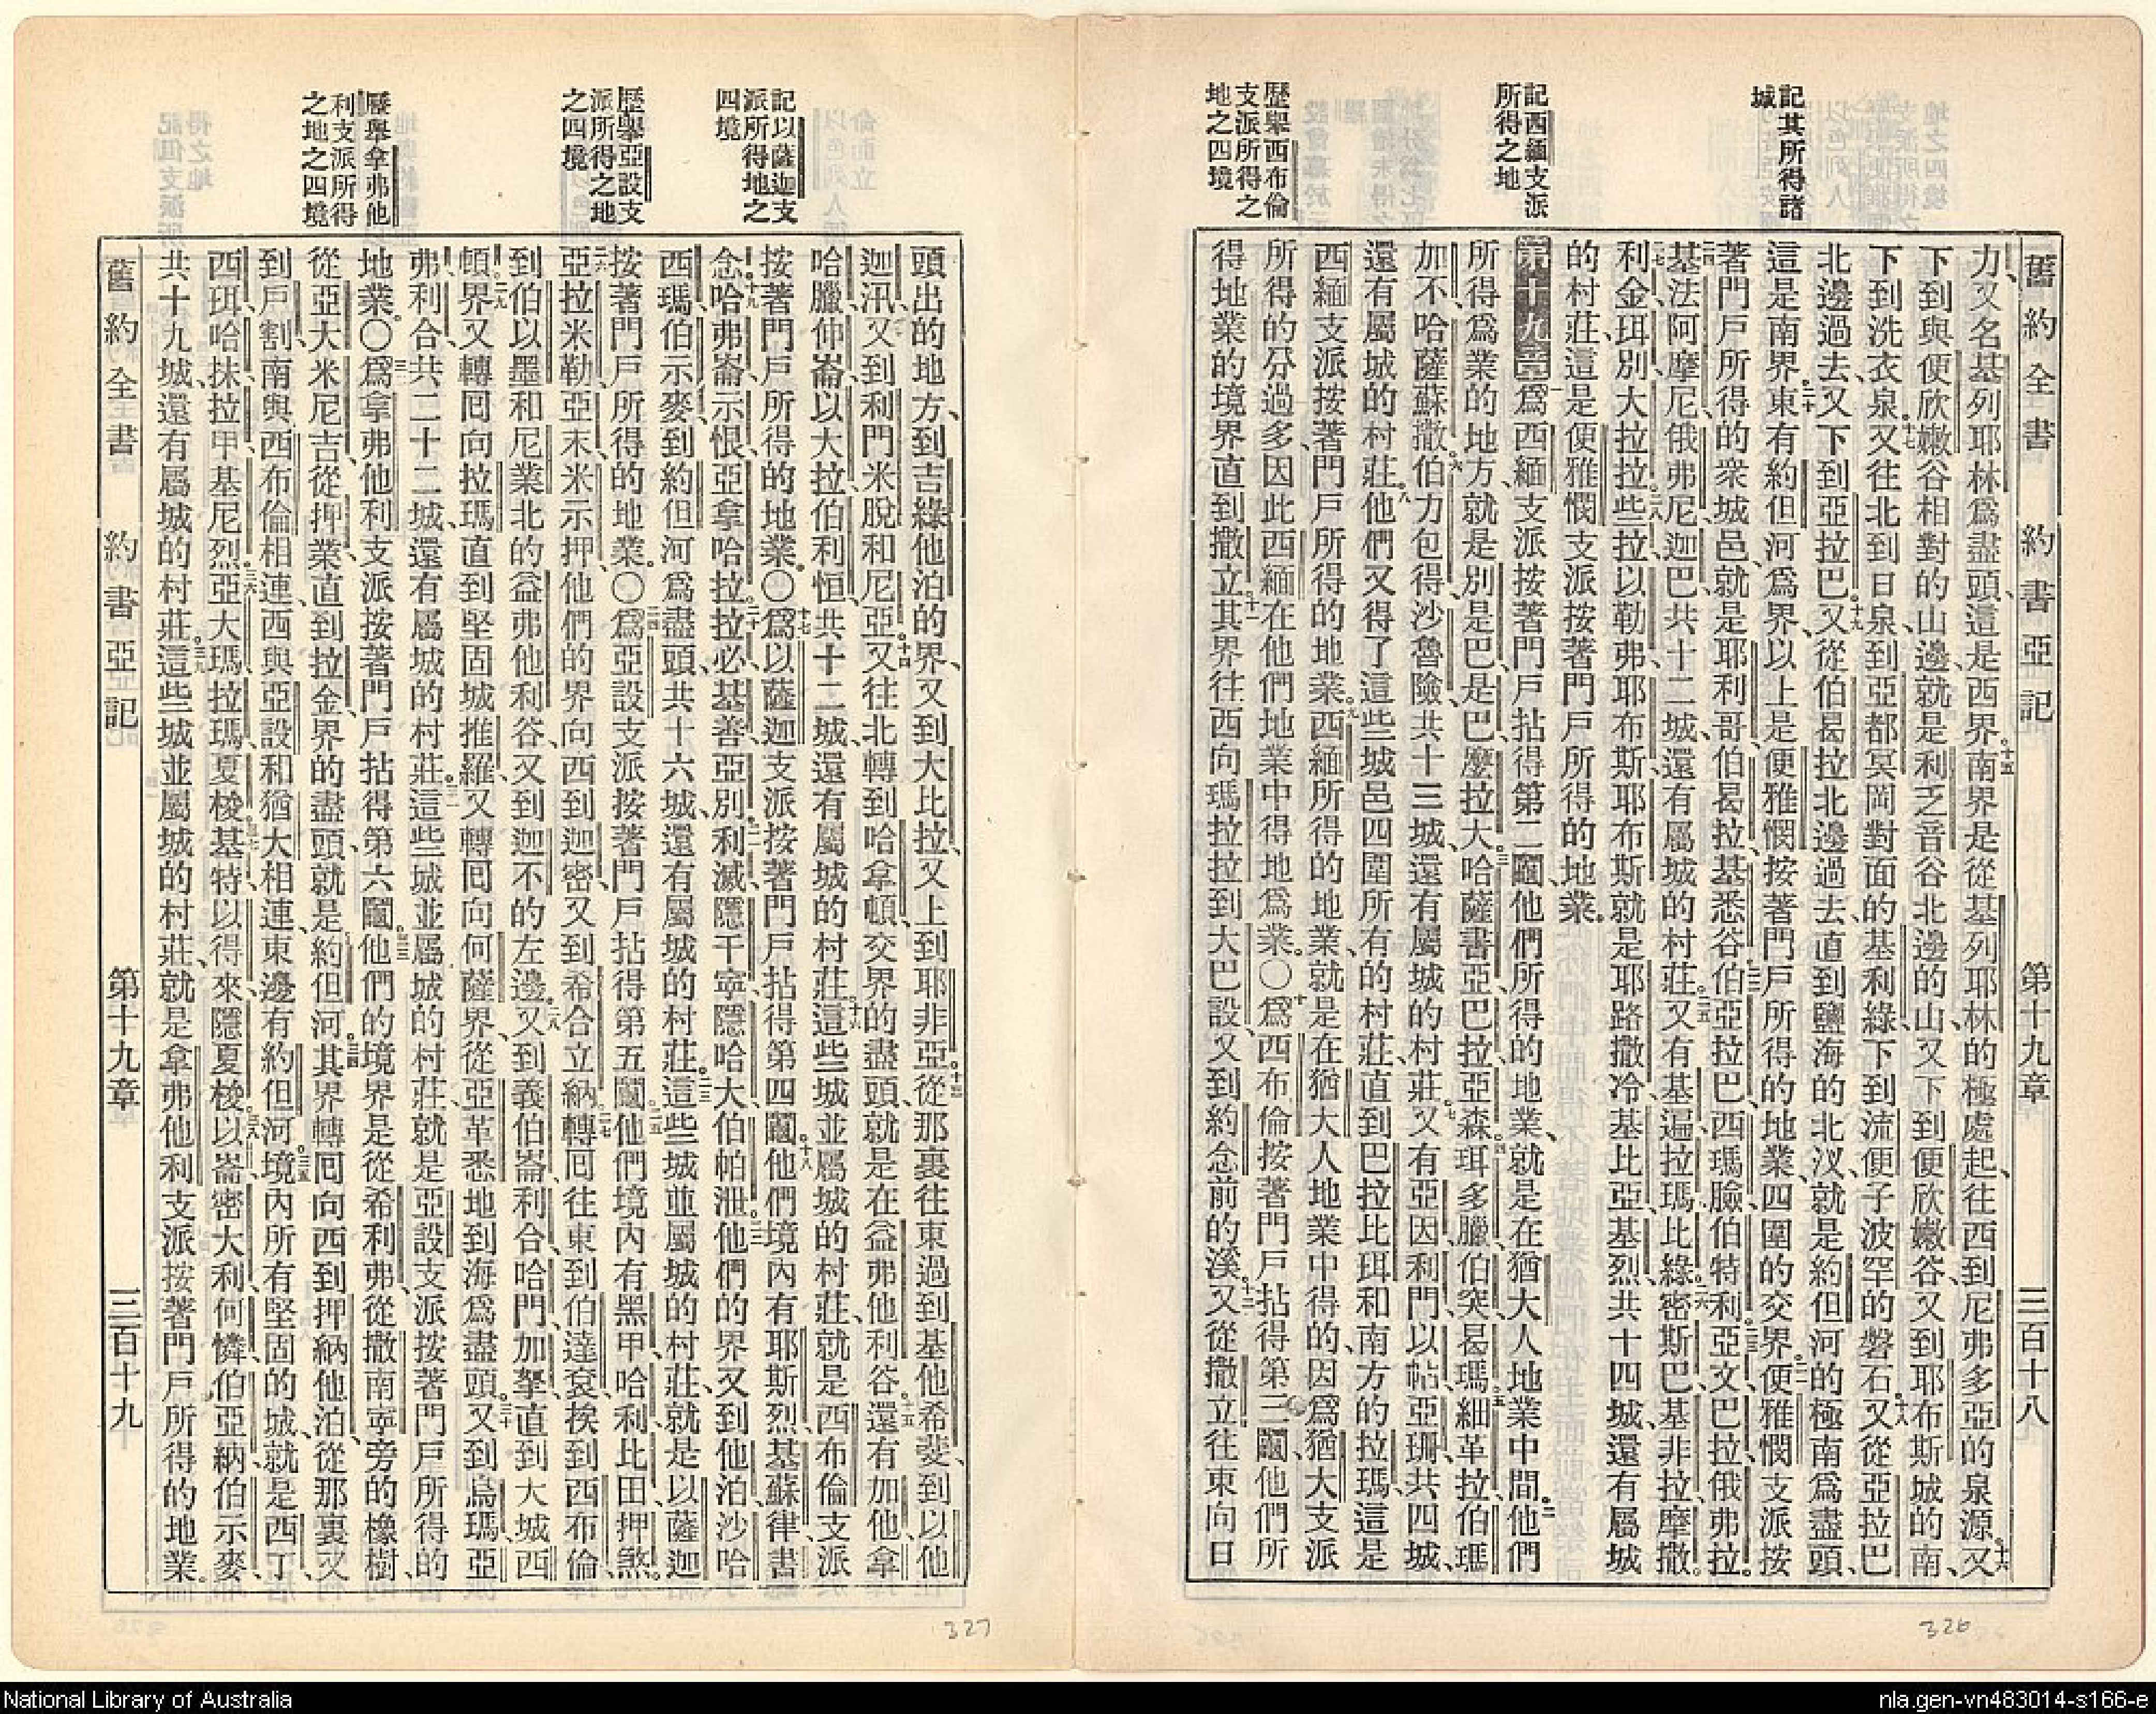 舊約全書 約書亞記 第十九章 三百十八
記其所得諸
城
記西緬支派
所得之地
歷舉西布倫
支派所得之
地之四境
力又名基列耶林為盡頭這是西界南界是從基列耶林的極處起往西到尼弗多亞的泉源又
下到與便欣嫩谷相對的山邊就是利乏音谷北邊的山又下到便欣嫩谷又到耶布斯城的南
下到洗衣泉又往北到日泉到亞都冥岡對面的基利綠下到流便子波罕的磐石又從亞拉巴
北邊過去又下到亞拉巴又從伯曷拉北邊過去直到鹽海的北汊就是約但河的極南為盡頭
這是南界東有約但河為界以上是便雅憫按著門戶所得的地業四圍的交界便雅憫支派按
著門戶所得的衆城邑就是耶利哥伯曷拉基悉谷伯亞拉巴西瑪臉伯特利亞文巴拉俄弗拉
基法阿摩尼俄弗尼迦巴共十二城還有屬城的村莊又有基遍拉瑪比綠密斯巴基非拉摩撒
利金珥別大拉拉些拉以勒弗耶布斯耶布斯就是耶路撒冷基比亞基烈共十四城還有屬城
的村莊這是便雅憫支派按著門戶所得的地業
第十九章為西緬支派按著門戶拈得第二鬮他們所得的地業就是在猶大人地業中間他們
所得為業的地方就是別是巴是巴麼拉大哈薩書亞巴拉亞森珥多臘伯突曷瑪細革拉伯瑪
加不哈薩蘇撒伯力包得沙魯險共十三城還有屬城的村莊又有亞因利門以帖亞珊共四城
還有屬城的村莊他們又得了這些城邑四圍所有的村莊直到巴拉比珥和南方的拉瑪這是
西緬支派按著門戶所得的地業西緬所得的地業就是在猶大人地業中得的因為猶大支派
所得的分過多因此西緬在他們地業中得地為業○為西布倫按著門戶拈得第三鬮他們所
得地業的境界直到撒立其界往西向瑪拉拉到大巴設又到約念前的溪又從撒立往東向日
記以薩迦支
派所得地之
四境
歷舉亞設支
派所得之地
之四境
歷舉拿弗他
利支派所得
之地之四境
頭出的地方到吉綠他泊的界又到大比拉又上到耶非亞從那裏往東過到基他希斐到以他
迦汛又到利門米脫和尼亞又往北轉到哈拿頓交界的盡頭就是在益弗他利谷還有加他拿
哈臘伸崙以大拉伯利恒共十二城還有屬城的村莊這些城並屬城的村莊就是西布倫支派
按著門戶所得的地業○為以薩迦支派按著門戶拈得第四鬮他們境內有耶斯烈基蘇律書
念哈弗崙示恨亞拿哈拉拉必基善亞別利滅隱干寧隱哈大伯帕泄他們的界又到他泊沙哈
西瑪伯示麥到約但河為盡頭共十六城還有屬城的村莊這些城並屬城的村莊就是以薩迦
按著門戶所得的地業○為亞設支派按著門戶拈得第五鬮他們境內有黑甲哈利比田押煞
亞拉米勒亞末米示押他們的界向西到迦密又到希合立納轉回往東到伯達袞挨到西布倫
到伯以墨和尼業北的益弗他利谷又到迦不的左邊又到義伯崙利合哈門加拏直到大城西
頓界又轉回向拉瑪直到堅固城推羅又轉回向何薩界從亞革悉地到海為盡頭又到烏瑪亞
弗利合共二十二城還有屬城的村莊這些城並屬城的村莊就是亞設支派按著門戶所得的
地業○為拿弗他利支派按著門戶拈得第六鬮他們的境界是從希利弗從撒南寧旁的橡樹
從亞大米尼吉從押業直到拉金界的盡頭就是約但河其界轉回向西到押納他泊從那裏又
到戶割南與西布倫相連西與亞設和猶大相連東邊有約但河境內所有堅固的城就是西丁
西珥哈抹拉甲基尼烈亞大瑪拉瑪夏梭基特以得來隱夏梭以崙密大利何憐伯亞納伯示麥
共十九城還有屬城的村莊這些城並屬城的村莊就是拿弗他利支派按著門戶所得的地業
舊約全書 約書亞記 第十九章 三百十九
327
326
National Library of Australia
nla.gen-vn483014-s166-e